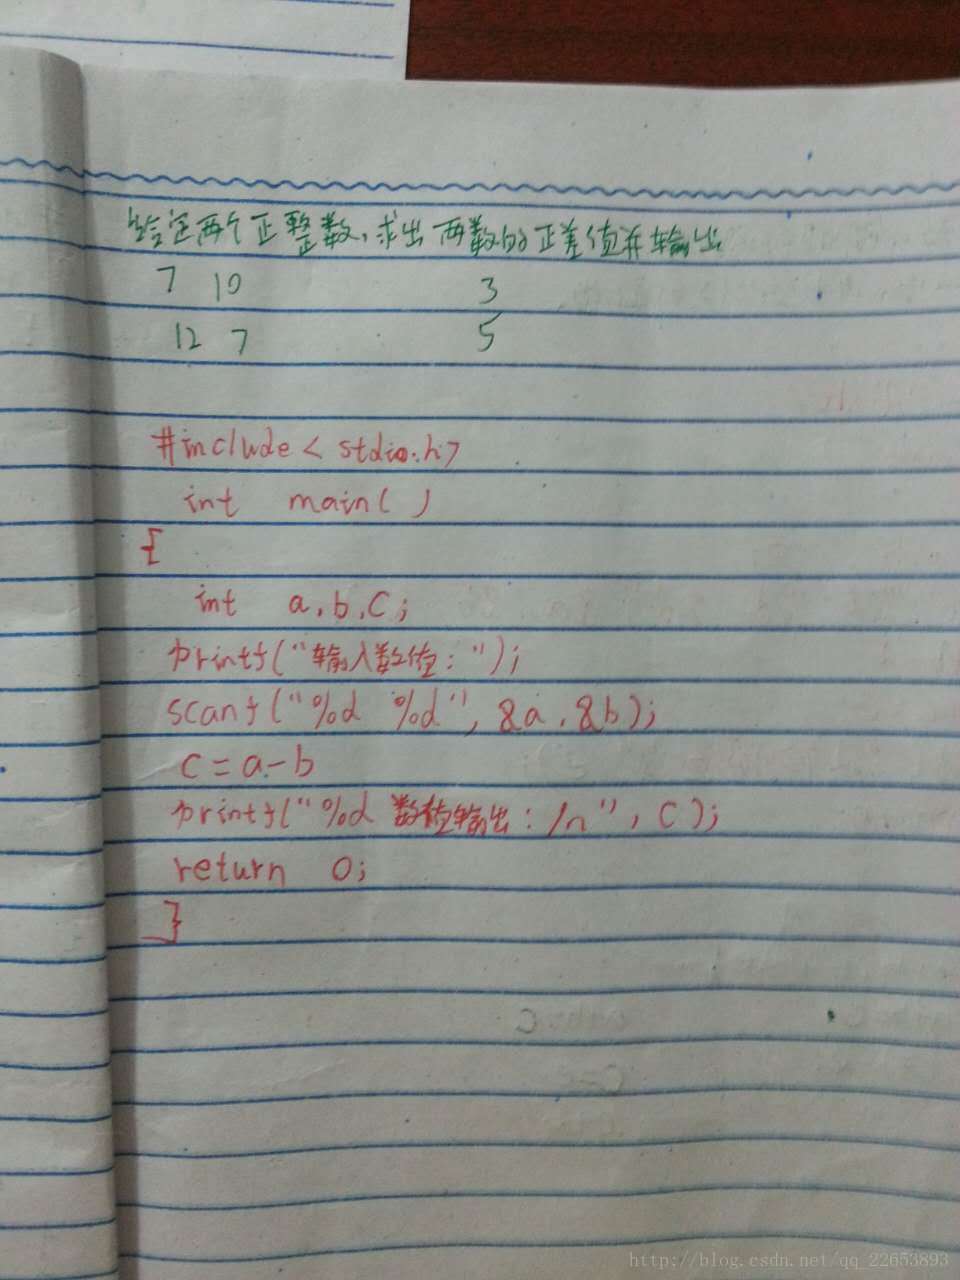 给定两个正整数,求出两数的正差值并输出
7 10 3
12 7 5
#include < stdio.h>
int main( )
{
int a,b,c;
printf("输入数值:");
scanf("%d %d", &a,&b);
c=a-b
printf("%d 数值输出: /n",c);
return 0;
}
http://blog.csdn.net/qq_22653893